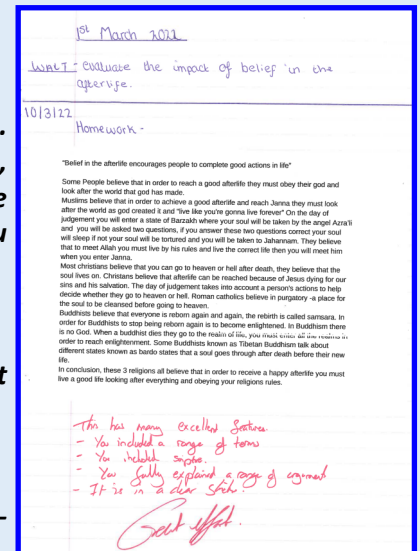 1st March 2022
WALT - evaluate the impact of belief in the
afterlife.
10/3/22
Homework -
"Belief in the afterlife encourages people to complete good actions in life"
Some People believe that in order to reach a good afterlife they must obey their god and
look after the world that god has made.
Muslims believe that in order to achieve a good afterlife and reach Janna they must look
after the world as god created it and "live like you're gonna live forever" On the day of
judgement you will enter a state of Barzakh where your soul will be taken by the angel Azra'il
and you will be asked two questions, if you answer these two questions correct your soul
will sleep if not your soul will be tortured and you will be taken to Jahannam. They believe
that to meet Allah you must live by his rules and live the correct life then you will meet him
when you enter Janna.
Most christians believe that you can go to heaven or hell after death, they believe that the
soul lives on. Christans believe that afterlife can be reached because of Jesus dying for our
sins and his salvation. The day of judgement takes into account a person's actions to help
decide whether they go to heaven or hell. Roman catholics believe in purgatory -a place for
the soul to be cleansed before going to heaven.
Buddhists believe that everyone is reborn again and again, the rebirth is called samsara. In
order for Buddhists to stop being reborn again is to become enlightened. In Buddhism there
is no God. When a buddhist dies they go to the realm of life, you must enter all the realms in
order to reach enlightenment. Some Buddhists known as Tibetan Buddhism talk about
different states known as bardo states that a soul goes through after death before their new
life.
In conclusion, these 3 religions all believe that in order to receive a happy afterlife you must
live a good life looking after everything and obeying your religions rules.
This has many excellent features
- You included a range of terms
- You included
- You fully explained a range of argument
- It is in a clear
Great effort.